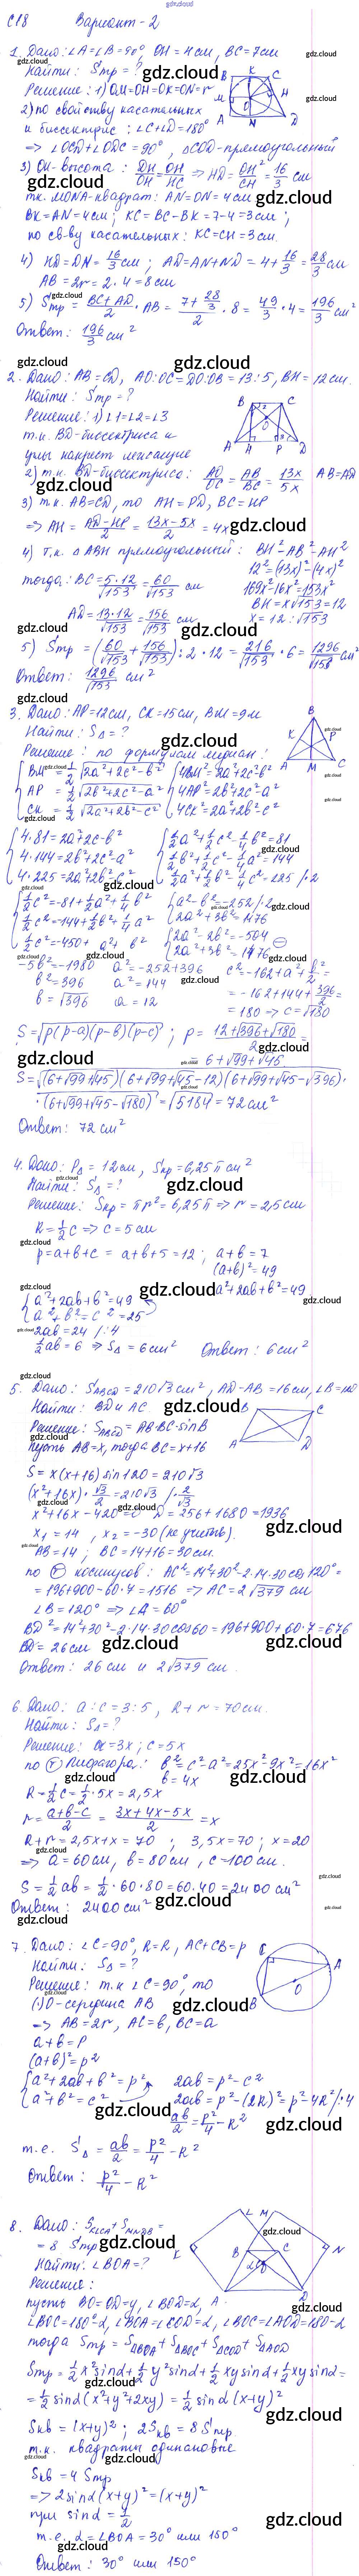 С18 Вариант - 2
1. Дано: ∠A = ∠B = 90° OH = 4см, BC = 7см
Найти: Sтр = ?
Решение: 1) OM=OH=OK=ON=r
2) по свойству касательных
и биссектрис: ∠C+∠D=180°
⇒ ∠OCD+∠ODC = 90°, △COD - прямоугольный
3) OH - высота: DH/OH = OH/HC ⇒ HD = OH²/CH = 16/3 см
т.к. MONA - квадрат: AN = ON = 4см
BK = AN = 4см; KC = BC - BK = 7-4 = 3см;
по св-ву касательных: KC = CH = 3см.
4) HD = DN = 16/3 см; AD = AN + ND = 4 + 16/3 = 28/3 см
AB = 2r = 2·4 = 8см
5) Sтр = (BC+AD)/2 · AB = (7 + 28/3)/2 · 8 = 49/3 · 4 = 196/3 см²
Ответ: 196/3 см²
2. Дано: AB = CD, AO:OC = DO:OB = 13:5, BH = 12см.
Найти: Sтр = ?
Решение: 1) ∠1 = ∠2 = ∠3
т.к. BD - биссектриса и
углы накрест лежащие
2) т.к. BD - биссектриса: AO/OC = AB/BC = 13x/5x AB = AD
3) т.к. AB = CD, то AH = PD, BC = HP
⇒ AH = (AD - HP)/2 = (13x - 5x)/2 = 4x
4) т.к. △ABH прямоугольный: BH² = AB² - AH²
12² = (13x)² - (4x)²
тогда: BC = 5·12/√153 = 60/√153 см 169x² - 16x² = 153x²
BH = x√153 = 12
AD = 13·12/√153 = 156/√153 см x = 12 : √153
5) Sтр = (60/√153 + 156/√153) : 2 · 12 = 216/√153 · 6 = 1296/√153 см²
Ответ: 1296/√153 см²
3. Дано: AP = 12см, CK = 15см, BM = 9см
Найти: S△ = ?
Решение: по формулам медиан:
{BM = 1/2 √(2a² + 2c² - b²) {4BM² = 2a² + 2c² - b²
AP = 1/2 √(2b² + 2c² - a²) 4AP² = 2b² + 2c² - a²
CK = 1/2 √(2a² + 2b² - c²) 4CK² = 2a² + 2b² - c²
{4·81 = 2a² + 2c² - b² {1/2 a² + 1/2 c² - 1/4 b² = 81
4·144 = 2b² + 2c² - a² 1/2 b² + 1/2 c² - 1/4 a² = 144
4·225 = 2a² + 2b² - c² 1/2 a² + 1/2 b² - 1/4 c² = 225 /·2
{1/2 c² = -81 + 1/2 a² + 1/4 b² {a² - b² = -252 /·2
1/2 c² = -144 + 1/2 b² + 1/4 a² 2a² + 3b² = 1476
1/2 c² = -450 + a² + b² {2a² - 2b² = -504
2a² + 3b² = 1476
-5b² = -1980 a² = -252 + 396 c² = -162 + a² + b²/2 =
b² = 396 a² = 144 = -162 + 144 + 396/2 =
b = √396 a = 12 = 180 ⇒ c = √180
S = √(p(p-a)(p-b)(p-c)); p = (12 + √396 + √180)/2 =
= 6 + √99 + √45
S = √((6+√99+√45)(6+√99+√45-12)(6+√99+√45-√396)·
·(6+√99+√45-√180)) = √5184 = 72см²
Ответ: 72 см²
4. Дано: P△ = 12см, Sкр = 6,25π см²
Найти: S△ = ?
Решение: Sкр = πr² = 6,25π ⇒ r = 2,5см
R = 1/2 c ⇒ c = 5см
p = a+b+c = a+b+5 = 12; a+b = 7
(a+b)² = 49
a² + 2ab + b² = 49
{a² + 2ab + b² = 49
a² + b² = c² = 25
2ab = 24 /:4
1/2 ab = 6 ⇒ S△ = 6см² Ответ: 6см²
5. Дано: SABCD = 210√3 см², AD - AB = 16см, ∠B = 120°
Найти: BD и AC.
Решение: SABCD = AB·BC·sinB
пусть AB = x, тогда BC = x+16
S = x(x+16) sin120 = 210√3
(x² + 16x)·√3/2 = 210√3 /·2/√3
x² + 16x - 420 = 0 D = 256 + 1680 = 1936
x₁ = 14, x₂ = -30 (не учитыв).
AB = 14; BC = 14+16 = 30см
по Ⓣ косинусов: AC² = 14² + 30² - 2·14·30 cos120° =
= 196 + 900 - 60·7 = 1516 ⇒ AC = 2√379 см
∠B = 120° ⇒ ∠A = 60°
BD² = 14² + 30² - 2·14·30 cos60 = 196 + 900 + 60·7 = 676
BD = 26см
Ответ: 26 см и 2√379 см.
6. Дано: a:c = 3:5, R + r = 70см.
Найти: S△ = ?
Решение: a = 3x; c = 5x
по Ⓣ Пифагора: b² = c² - a² = 25x² - 9x² = 16x²
b = 4x
R = 1/2 c = 1/2 · 5x = 2,5x
r = (a+b-c)/2 = (3x+4x-5x)/2 = x
R + r = 2,5x + x = 70; 3,5x = 70; x = 20
⇒ a = 60см, b = 80см, c = 100см.
S = 1/2 ab = 1/2 · 60·80 = 60·40 = 2400 см²
Ответ: 2400 см²
7. Дано: ∠C = 90°, R = R, AC + CB = p
Найти: S△ = ?
Решение: т.к ∠C = 90°, то
(·) O - середина AB
⇒ AB = 2r, AC = b, BC = a
a + b = p
(a+b)² = p²
{a² + 2ab + b² = p² 2ab = p² - c²
a² + b² = c² 2ab = p² - (2R)² = p² - 4R² /:4
ab/2 = p²/4 - R²
т.е. S△ = ab/2 = p²/4 - R²
Ответ: p²/4 - R²
8. Дано: SKLCA + SMNDB =
= 8 Sтр
Найти: ∠BOA = ?
Решение:
пусть BO = OD = y, ∠BOA = α,
∠BOC = 180° - α, ∠BOA = ∠COD = α, ∠BOC = ∠AOD = 180 - α
тогда Sтр = S△BOA + S△BOC + S△COD + S△AOD
Sтр = 1/2 x² sinα + 1/2 y² sinα + 1/2 xy sinα + 1/2 xy sinα =
= 1/2 sinα (x² + y² + 2xy) = 1/2 sinα (x+y)²
Sкв = (x+y)²; 2Sкв = 8Sтр
т.к. квадраты одинаковые
Sкв = 4 Sтр
⇒ 2 sinα (x+y)² = (x+y)²
при sinα = 1/2
т.е. α = ∠BOA = 30° или 150°
Ответ: 30° или 150°
gdz.cloud